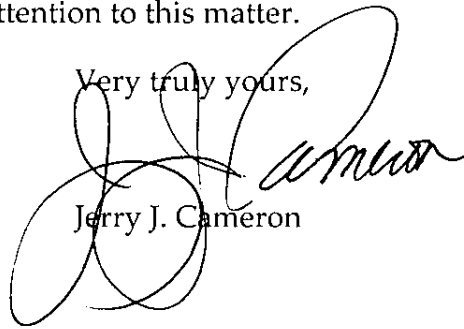 ttention to this matter.
Very truly yours,
JJ Cameron
Jerry J. Cameron